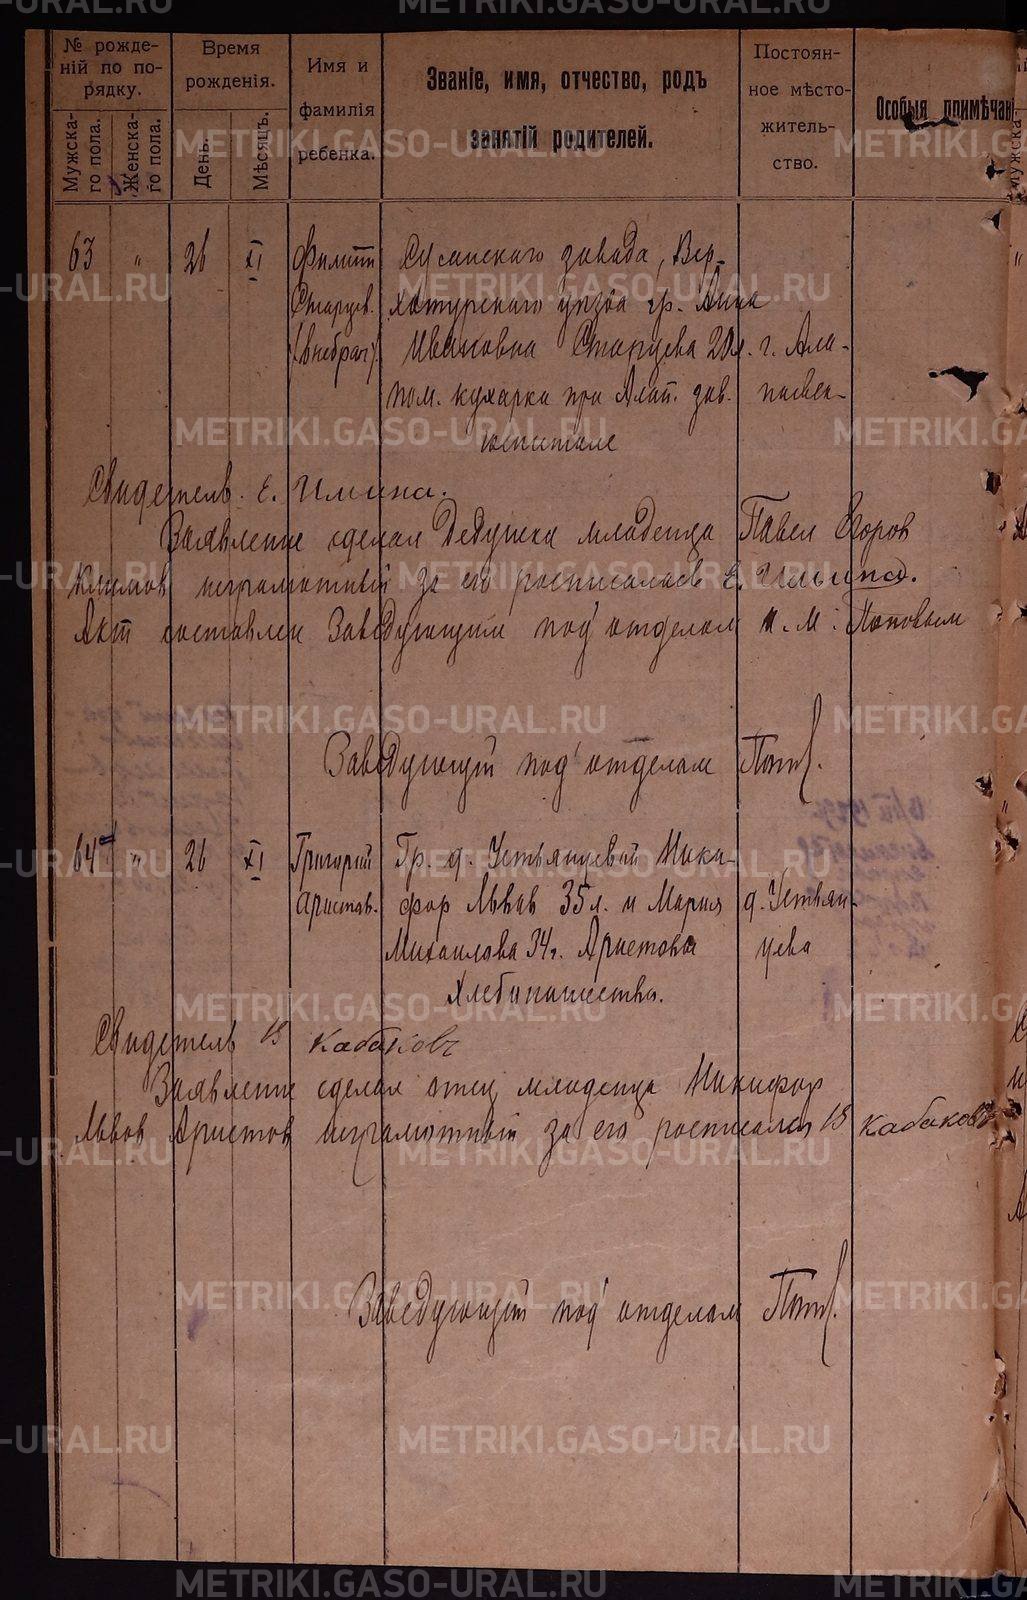 № рожде-
ній по по-
рядку.
Мужска-
го пола.
Женска-
го пола.
Время
рожденія.
День.
Мѣсяцъ.
Имя и
фамилія
ребенка.
Званіе, имя, отчество, родъ
занятій родителей.
Постоян-
ное мѣсто-
житель-
ство.
Особыя примѣчан
63 " 26 XI Филипп Сусанскаго завода, Вер-
Старцев. хотурскаго уезда гр. Анна
(внебрач) Ивановна Старцева 20 л. г. Ала-
пом. кухарка при Алап. зав. паевск-
госпитале
Свидетель. Е. Ильина.
Заявление сделал Дедушка младенца Павел Егоров
Климов неграмотный за его росписалась Е. Ильина.
Акт составлен Заведующим под'отделом И. М. Поповым
Заведующий под'отделом
64 " 26 XI Григорий Гр. д. Устьянцевой Ники-
Аристов. фор Львов 35 л. и Мария д. Устьян-
Михаилова 34 г. Аристовы цева
Хлебопашество.
Свидетель В Кабаковъ
Заявление сделал отец младенца Никифор
Львов Аристов неграмотный за его росписался В Кабаковъ
Заведующий под'отделом
METRIKI.GASO-URAL.RU